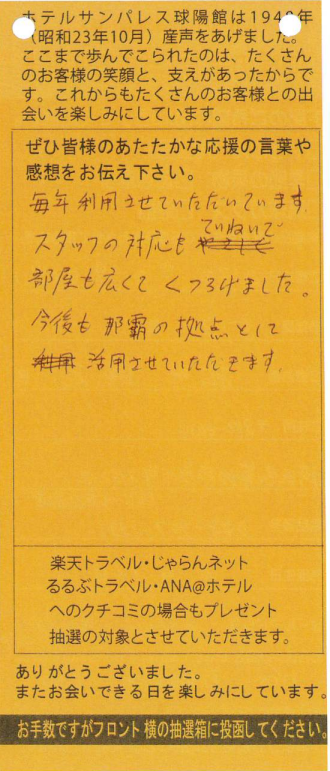 ホテルサンパレス球陽館は1948年
(昭和23年10月)産声をあげました。
ここまで歩んでこられたのは、たくさん
のお客様の笑顔と、支えがあったからで
す。これからもたくさんのお客様との出
会いを楽しみにしています。
ぜひ皆様のあたたかな応援の言葉や
感想をお伝え下さい。
毎年利用させていただいています。
ていねいで
スタッフの対応も
部屋も広くてくつろげました。
今後も那覇の拠点として
活用させていただきます。
楽天トラベル・じゃらんネット
るるぶトラベル・ANA@ホテル
へのクチコミの場合もプレゼント
抽選の対象とさせていただきます。
ありがとうございました。
またお会いできる日を楽しみにしています。
お手数ですがフロント横の抽選箱に投函してください。